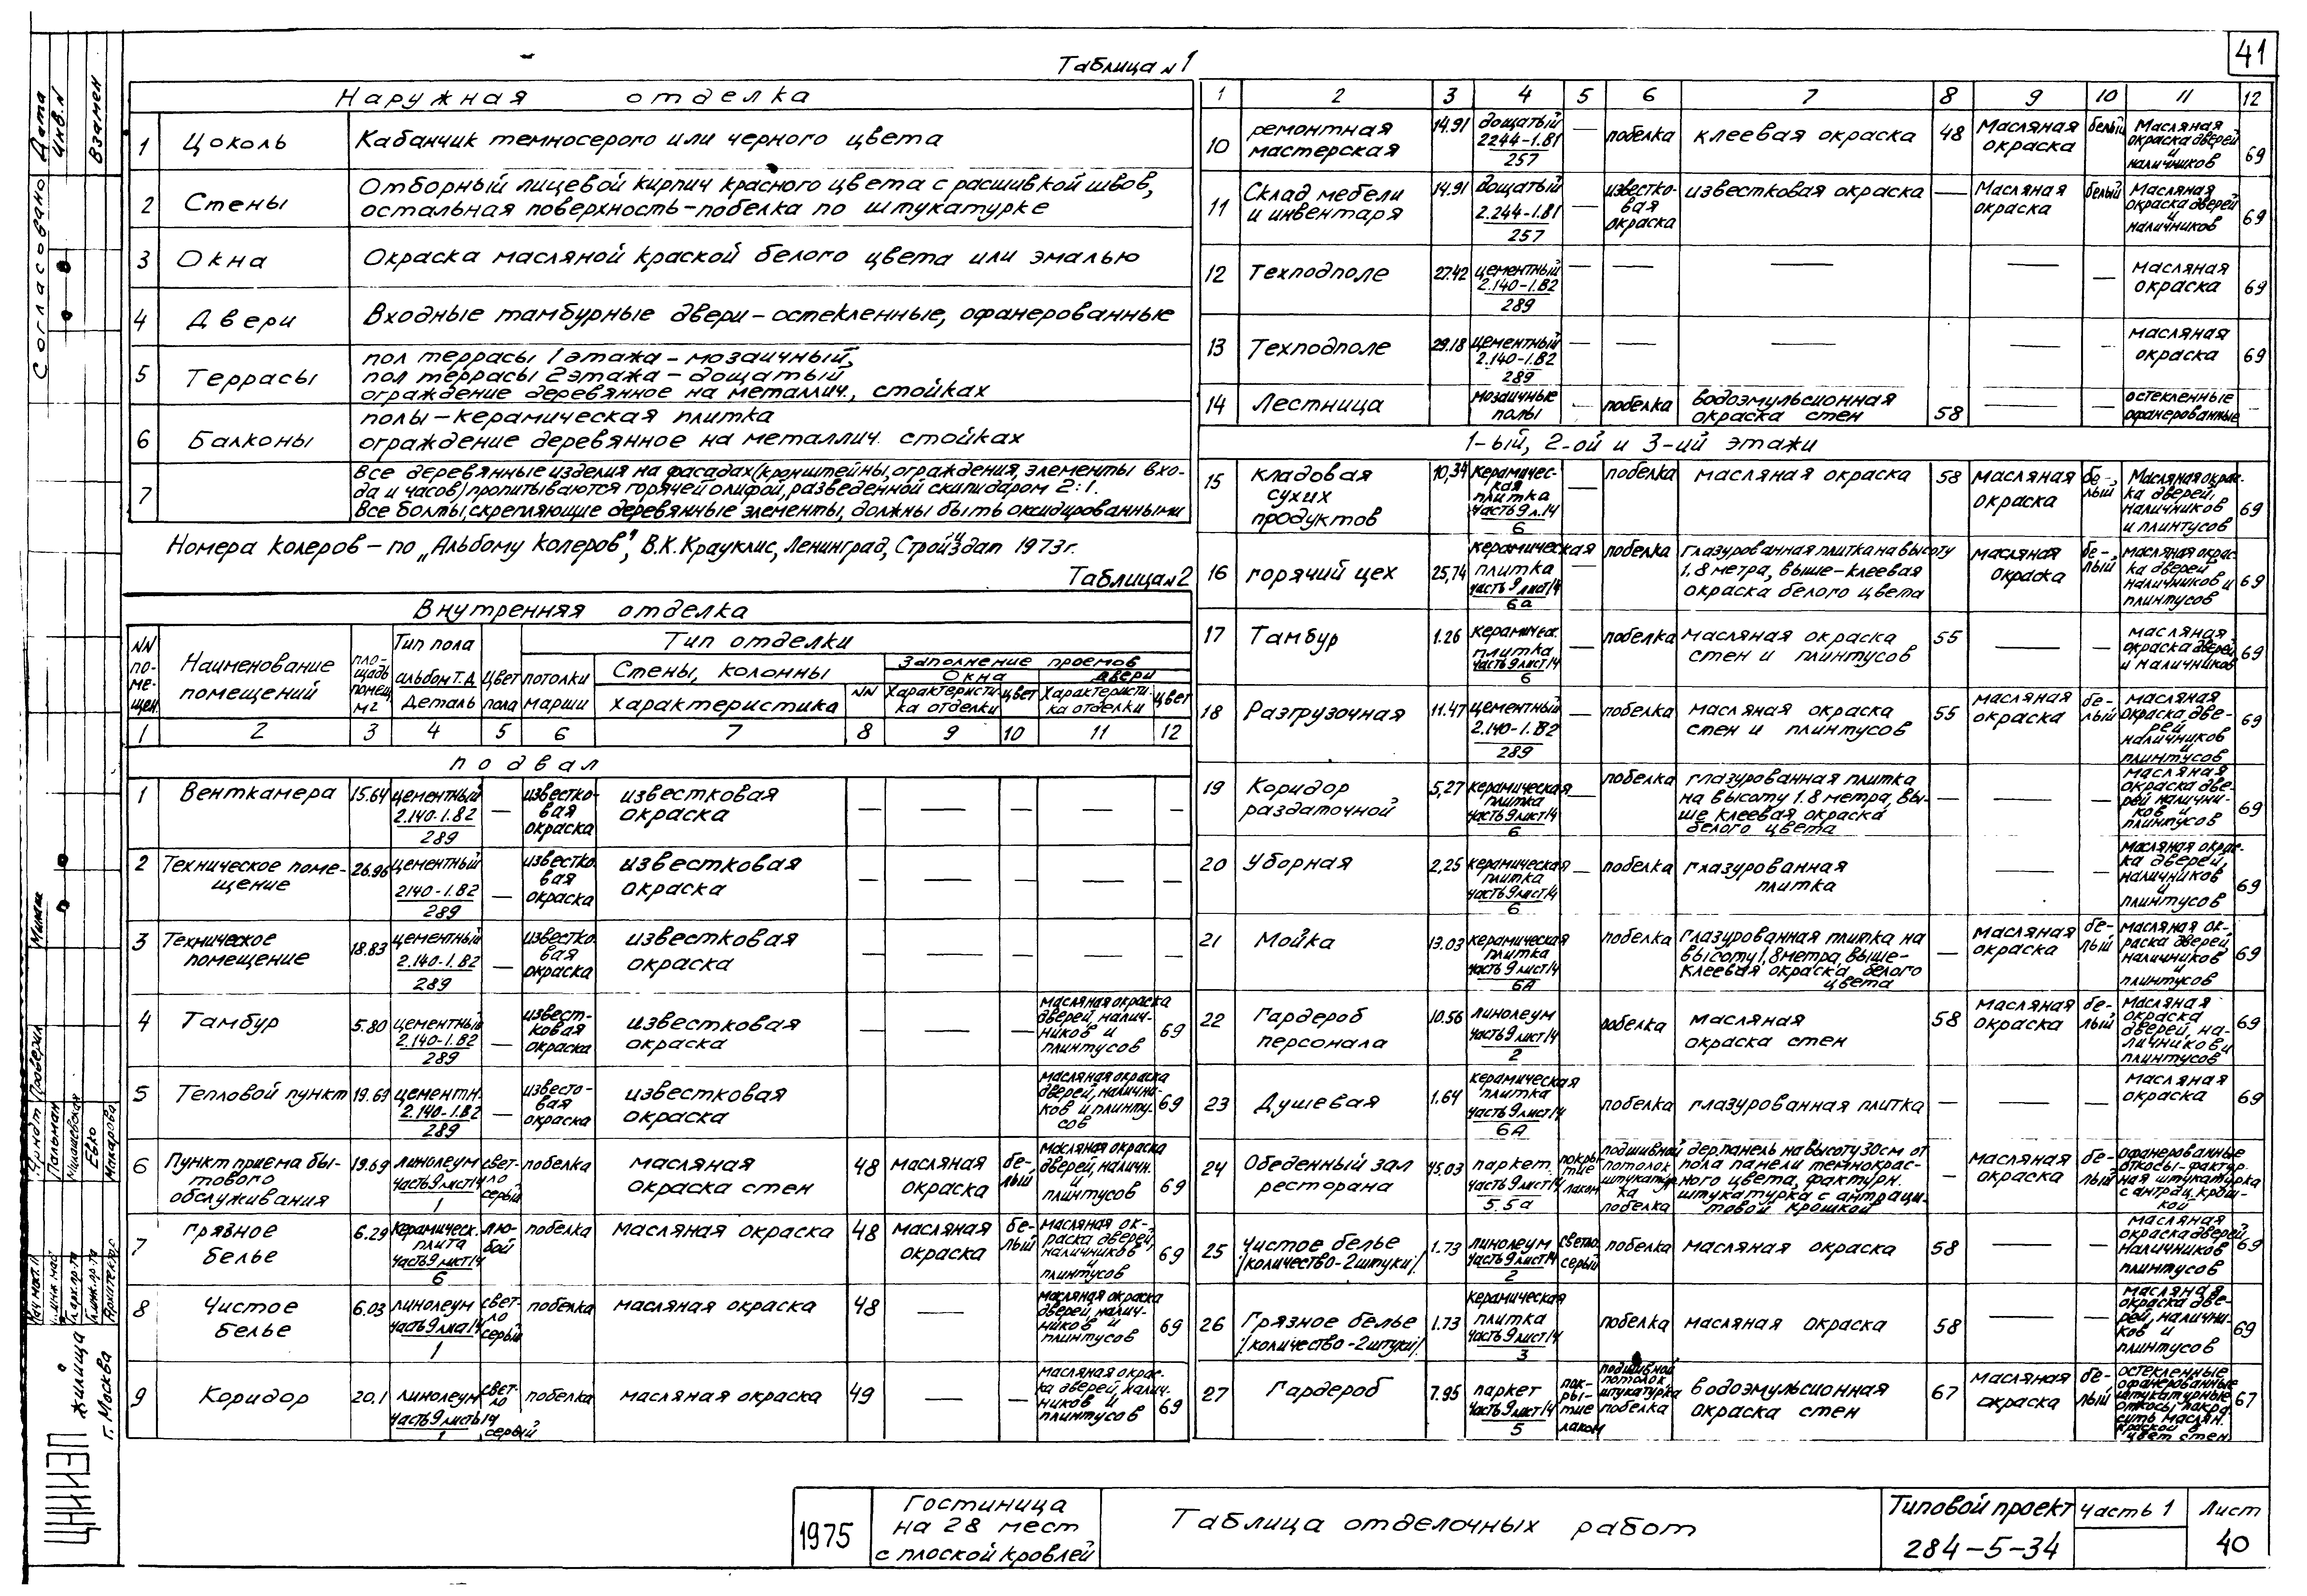 41
Таблица N 1
Наружная отделка
1 Цоколь Кабанчик темносерого или черного цвета
2 Стены Отборный лицевой кирпич красного цвета с расшивкой швов,
остальная поверхность-побелка по штукатурке
3 Окна Окраска масляной краской белого цвета или эмалью
4 Двери Входные тамбурные двери-остекленные, офанерованные
5 Террасы пол террасы 1 этажа-мозаичный,
пол террасы 2 этажа-дощатый,
ограждение деревянное на металлич., стойках
6 Балконы полы-керамическая плитка
ограждение деревянное на металлич. стойках
7 Все деревянные изделия на фасадах (кронштейны, ограждения, элементы вхо-
да и часов) пропитываются горячей олифой, разведенной скипидаром 2:1.
Все болты, скрепляющие деревянные элементы, должны быть оксидированными
Номера колеров-по „Альбому колеров", В.К. Крауклис, Ленинград, Стройиздат 1973г.
Таблица N 2
Внутренняя отделка
NN по-ме-щен. Наименование помещений пло-щадь помещ. м2 Тип пола альбом Т.Д. Деталь Цвет пола Тип отделки
потолки марши Стены, колонны характеристика NN Заполнение проемов
Окна Характеристи-ка отделки цвет двери Характеристи-ка отделки цвет
1 2 3 4 5 6 7 8 9 10 11 12
подвал
1 Венткамера 15.64 цементный 2.140-1.В2 289 — известко-вая окраска известковая окраска — — — — —
2 Техническое поме-щение 26.96 цементный 2140-1.В2 289 — известко вая окраска известковая окраска — — — — —
3 Техническое помещение 18.83 цементный 2.140-1.В2 289 — известко вая окраска известковая окраска — — — — —
4 Тамбур 5.80 цементный 2.140-1.В2 289 — извест-ковая окраска известковая окраска — — — масляная окраска дверей, налич-ников и плинтусов 69
5 Тепловой пункт 19.69 цементн. 2.140-1.В2 289 — известо-вая окраска известковая окраска масляная окраска дверей, налични-ков и плинту-сов 69
6 Пункт приема бы-тового обслуживания 19.69 линолеум часть 9 лист 14 1 свет-ло серый побелка масляная окраска стен 48 масляная окраска бе-лый масляная окраска дверей, наличн. и плинтусов 69
7 грязное белье 6.29 керамическ. плита часть 9 лист 14 6 лю-бой побелка масляная окраска 48 масляная окраска бе-лый масляная ок-раска дверей, наличников и плинтусов 69
8 Чистое белье 6.03 линолеум часть 9 лист 14 1 свет-ло серый побелка масляная окраска 48 — — масляная окраска дверей, налич-ников и плинтусов 69
9 Коридор 20.1 линолеум часть 9 листь 14 1 свет-ло серый побелка масляная окраска 49 — — масляная окрас-ка дверей, налич-ников и плинтусов 69
1 2 3 4 5 6 7 8 9 10 11 12
10 ремонтная мастерская 14.91 дощатый 2244-1.В1 257 — побелка клеевая окраска 48 Масляная окраска белый Масляная окраска дверей и наличников 69
11 Склад мебели и инвентаря 14.91 дощатый 2.244-1.В1 257 — известко-вая окраска известковая окраска — Масляная окраска белый Масляная окраска дверей и наличников 69
12 Техподполе 27.42 цементный 2.140-1.В2 289 — — — — — масляная окраска 69
13 Техподполе 29.18 цементный 2.140-1.В2 289 — — — — — масляная окраска 69
14 Лестница мозаичные полы — побелка водоэмульсионная окраска стен 58 — — остекленные офанерованные —
1-ый, 2-ой и 3-ий этажи
15 кладовая сухих продуктов 10,34 керамичес-кая плитка часть 9 л.14 6 — побелка масляная окраска 58 масляная окраска бе-лый Масляная окрас-ка дверей, наличников и плинтусов 69
16 горячий цех 25,74 керамическая плитка часть 9 лист 14 6а — побелка глазурованная плитка на высоту 1.8 метра, выше-клеевая окраска белого цвета масляная окраска бе-лый масляная окрас ка дверей наличников и плинтусов 69
17 Тамбур 1.26 керамичес. плитка часть 9 лист 14 6 — побелка масляная окраска стен и плинтусов 55 — — масляная окраска дверей и наличников 69
18 Разгрузочная 11.47 цементный 2.140-1.В2 289 — побелка масляная окраска стен и плинтусов 55 масляная окраска бе-лый масляная окраска две-рей наличников и плинтусов 69
19 Коридор раздаточной 5,27 керамическая плитка часть 9 лист 14 6 — побелка глазурованная плитка на высоту 1.8 метра, вы-ше клеевая окраска белого цвета — — — масляная окраска две-рей налични-ков и плинтусов 69
20 Уборная 2,25 керамическая плитка часть 9 лист 14 6 — побелка глазурованная плитка — — — Масляная окрас-ка дверей, наличников и плинтусов 69
21 Мойка 13.03 керамическая плитка часть 9 лист 14 6А побелка глазурованная плитка на высоту 1,8 метра, выше-клеевая окраска белого цвета — масляная окраска бе-лый масляная ок-раска дверей, наличников и плинтусов 69
22 Гардероб персонала 10.56 линолеум часть 9 лист 14 2 побелка масляная окраска стен 58 масляная окраска бе-лый масляная окраска дверей, на-личников и плинтусов 69
23 Душевая 1.64 керамическая плитка часть 9 лист 14 6А побелка глазурованная плитка — — — масляная окраска 69
24 Обеденный зал ресторана 45.03 паркет. часть 9 лист 14 5.5а покры тие лаком подшивной потолок штукатур-ка побелка дер. панель на высоту 30см от пола панели темнокрас-ного цвета, фактурн. штукатурка с антраци-товой крошкой — масляная окраска бе-лый офанерованные откосы-фактур ная штукатурка с антрац. крош-кой
25 Чистое белье /количество-2штуки/ 1.73 линолеум часть 9 лист 14 2 светло серый побелка масляная окраска 58 — — масляная окраска дверей, наличников и плинтусов 69
26 Грязное белье /количество-2штуки/ 1.73 керамическая плитка часть 9 лист 14 3 побелка масляная окраска 58 — — масляная окраска две-рей, налични-ков и плинтусов 69
27 Гардероб 7.95 паркет часть 9 лист 14 5 пок-ры-тие лаком подшивной потолок штукатурка побелка водоэмульсионная окраска стен 67 масляная окраска бе-лый остекленные офанерованные штукатурные откосы покра сить маслян. краской в цвет стен 67
1975
Гостиница
на 28 мест
с плоской кровлей
Таблица отделочных работ
Типовой проект
284-5-34
Часть 1
Лист
40
Согласовано
Дата
Инв. N
Взамен
Проверил
Пальман
Мишашевская
Евко
Макарова
Архитектор
ЦНИИЭП жилища
г. Москва